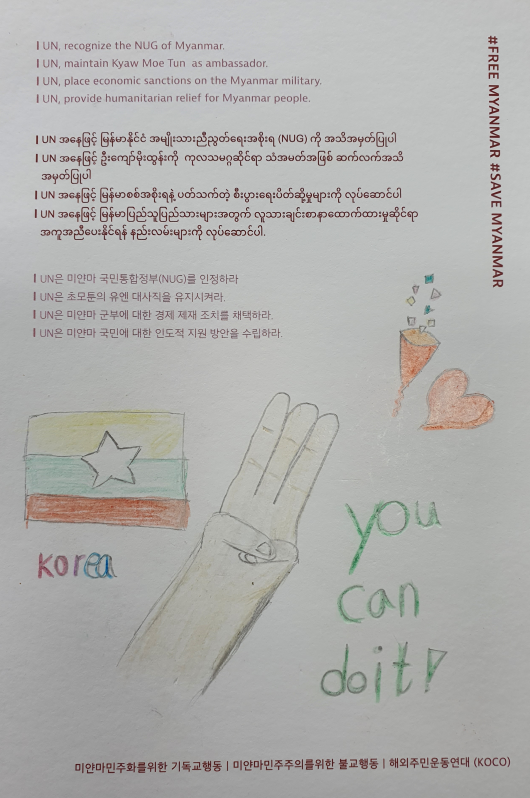 UN, recognize the NUG of Myanmar.
UN, maintain Kyaw Moe Tun as ambassador.
UN, place economic sanctions on the Myanmar military.
UN, provide humanitarian relief for Myanmar people.
#FREE MYANMAR #SAVE MYANMAR
UN အနေဖြင့် မြန်မာနိုင်ငံ အမျိုးသားညီညွတ်ရေးအစိုးရ (NUG) ကို အသိအမှတ်ပြုပါ
UN အနေဖြင့် ဦးကျော်မိုးထွန်းကို ကုလသမဂ္ဂဆိုင်ရာ သံအမတ်အဖြစ် ဆက်လက်အသိ
အမှတ်ပြုပါ
UN အနေဖြင့် မြန်မာစစ်အစိုးရနဲ့ ပတ်သက်တဲ့ စီးပွားရေးပိတ်ဆို့မှုများကို လုပ်ဆောင်ပါ
UN အနေဖြင့် မြန်မာပြည်သူပြည်သားများအတွက် လူသားချင်းစာနာထောက်ထားမှုဆိုင်ရာ
အကူအညီပေးနိုင်ရန် နည်းလမ်းများကို လုပ်ဆောင်ပါ.
UN은 미얀마 국민통합정부(NUG)를 인정하라
UN은 초모툰의 유엔 대사직을 유지시켜라.
UN은 미얀마 군부에 대한 경제 제재 조치를 채택하라.
UN은 미얀마 국민에 대한 인도적 지원 방안을 수립하라.
Korea
you
can
do it!
미얀마민주화를위한 기독교행동 | 미얀마민주주의를위한 불교행동 | 해외주민운동연대 (KOCO)